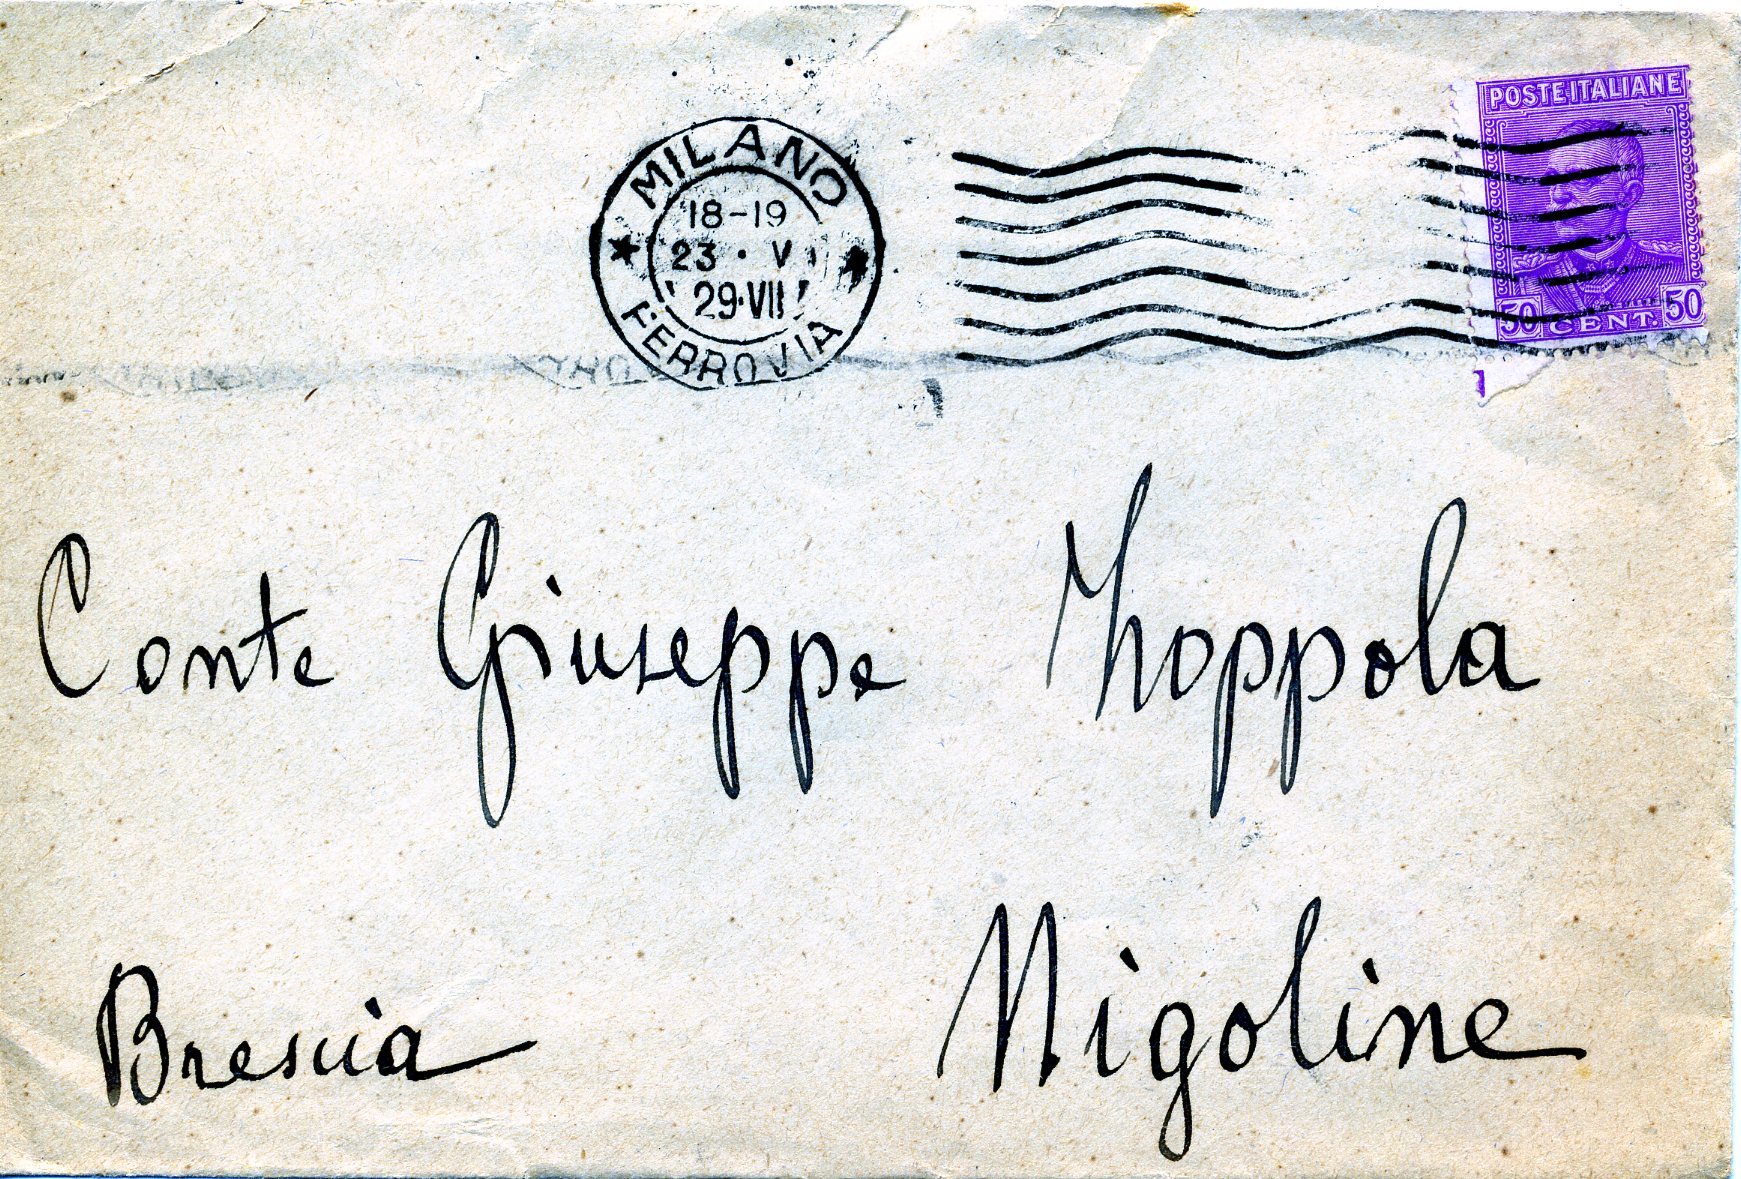 MILANO
18-19
23 · V
29·VII
FERROVIA
POSTE ITALIANE
50 CENT. 50
Conte Giuseppe Zoppola
Brescia Nigoline